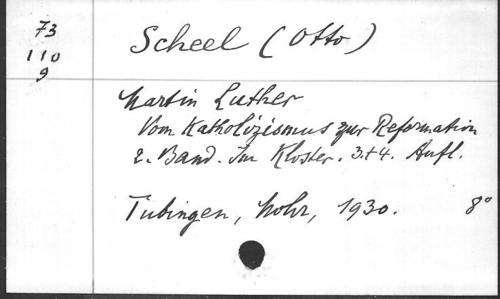 73
110
9
Scheel (Otto)
Martin Luther
Vom Katholizismus zur Reformation
2. Band. Im Kloster. 3.+4. Aufl.
Tubingen, Mohr, 1930. 8°